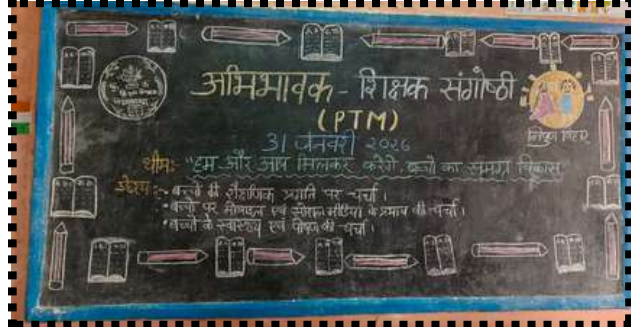 अभिभावक - शिक्षक संगोष्ठी
(PTM)
31 जनवरी 2026
थीम:- "हम और आप मिलकर करेंगे, बच्चों का समग्र विकास
उद्देश्य :- • बच्चों की शैक्षणिक प्रगति पर चर्चा।
• बच्चों पर मोबाइल एवं सोशल मीडिया के प्रभाव की चर्चा।
• बच्चों के स्वास्थ्य एवं पोषण की चर्चा।